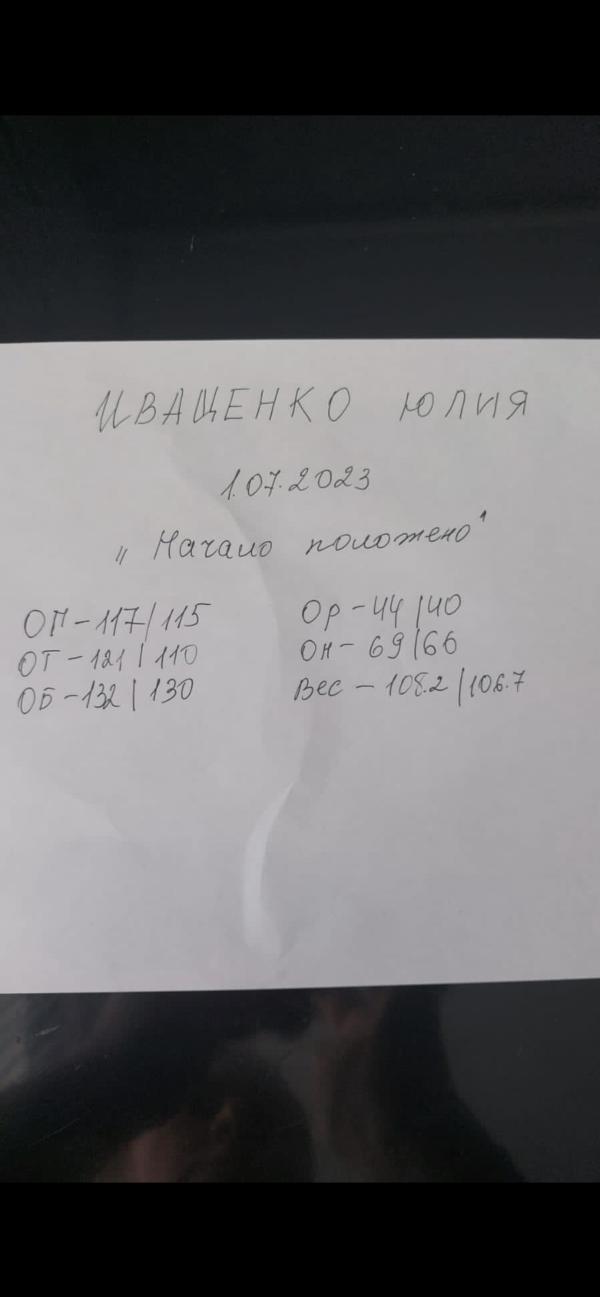 ИВАЩЕНКО ЮЛИЯ
1.07.2023
„Начало положено"
ОГ-117/115
ОТ-121|110
ОБ-132|130
Ор-44|40
Он-69|66
Вес-108.2|106.7